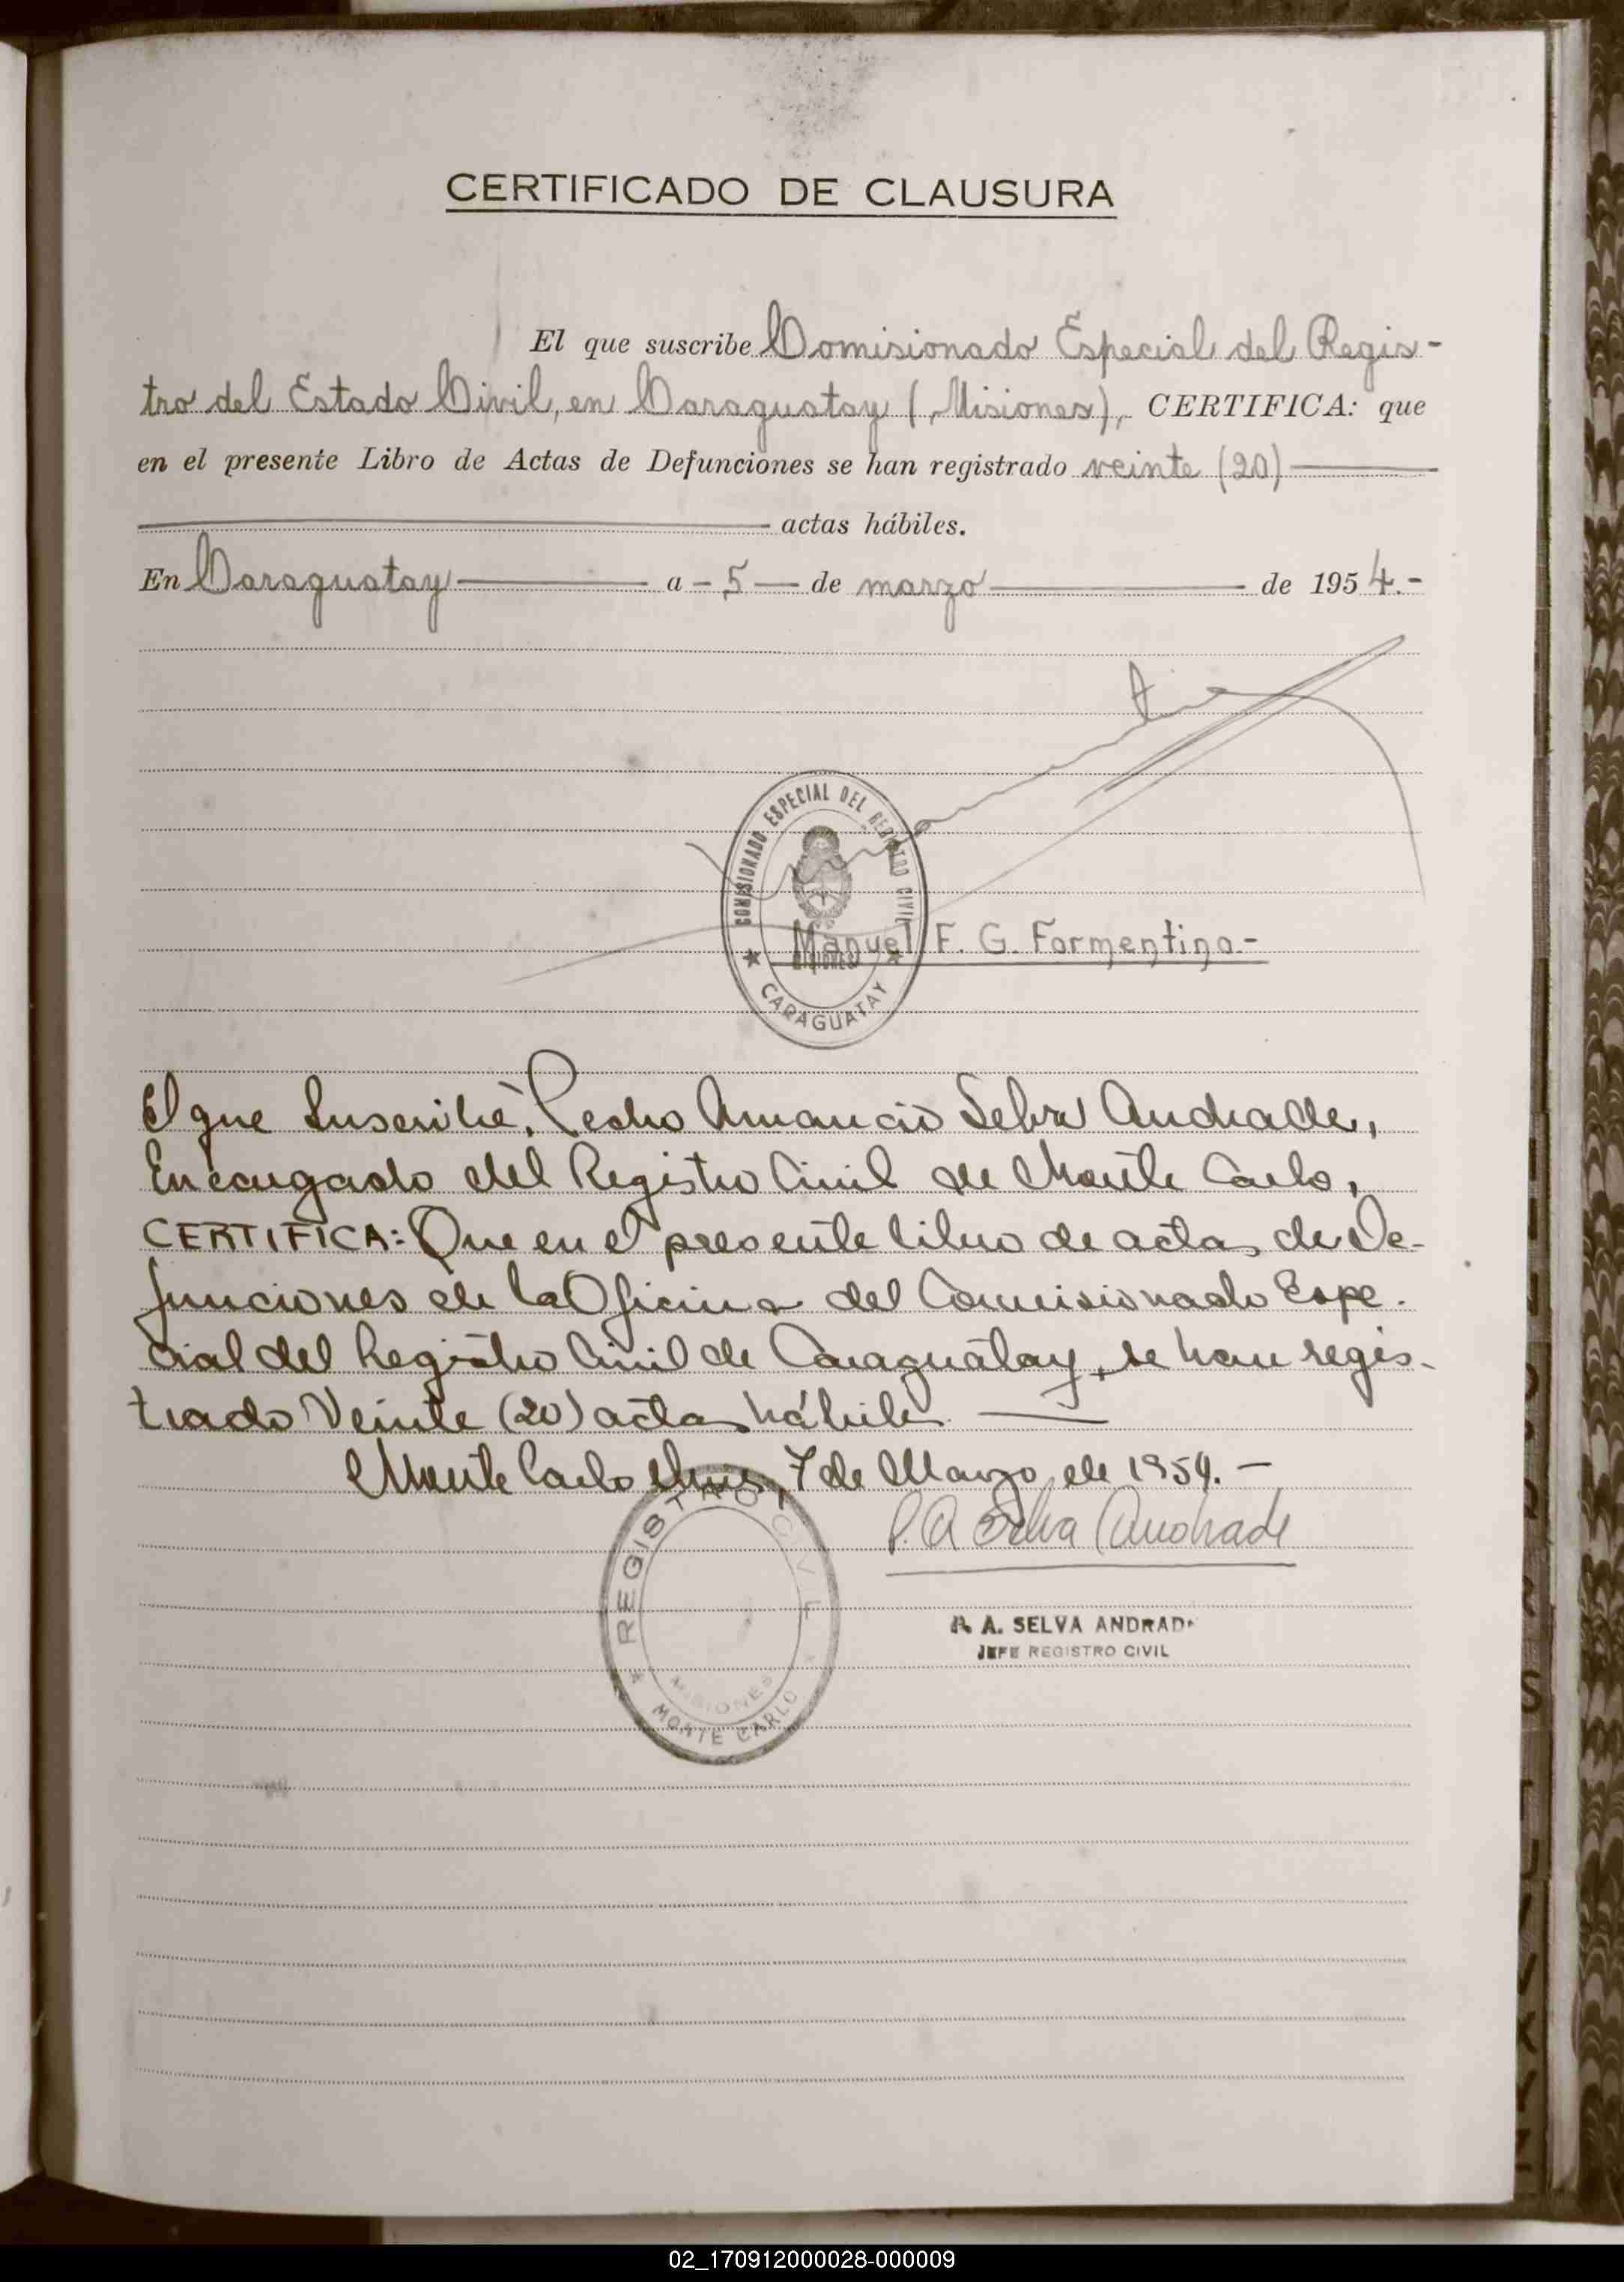 CERTIFICADO DE CLAUSURA
El que suscribe Comisionado Especial del Regis-
tro del Estado Civil, en Caraguatay (Misiones), CERTIFICA: que
en el presente Libro de Actas de Defunciones se han registrado veinte (20)
actas hábiles.
En Caraguatay a - 5 - de marzo de 1954.-
COMISIONADO ESPECIAL DEL REGISTRO CIVIL
MISIONES
CARAGUATAY
Manuel F. G. Formentino.-
El que Suscribe, Pedro Amancio Selva Andrade,
Encargado del Registro Civil de Monte Carlo,
CERTIFICA: Que en el presente libro de actas de De-
funciones de la Oficina del Comisionado Espe-
cial del Registro Civil de Caraguatay, se han regis-
trado Veinte (20) actas hábiles.
Monte Carlo Mnes, 7 de Marzo de 1954.-
P. A Selva Andrade
REGISTRO CIVIL
MISIONES
MONTE CARLO
P. A. SELVA ANDRADE
JEFE REGISTRO CIVIL
02_170912000028-000009